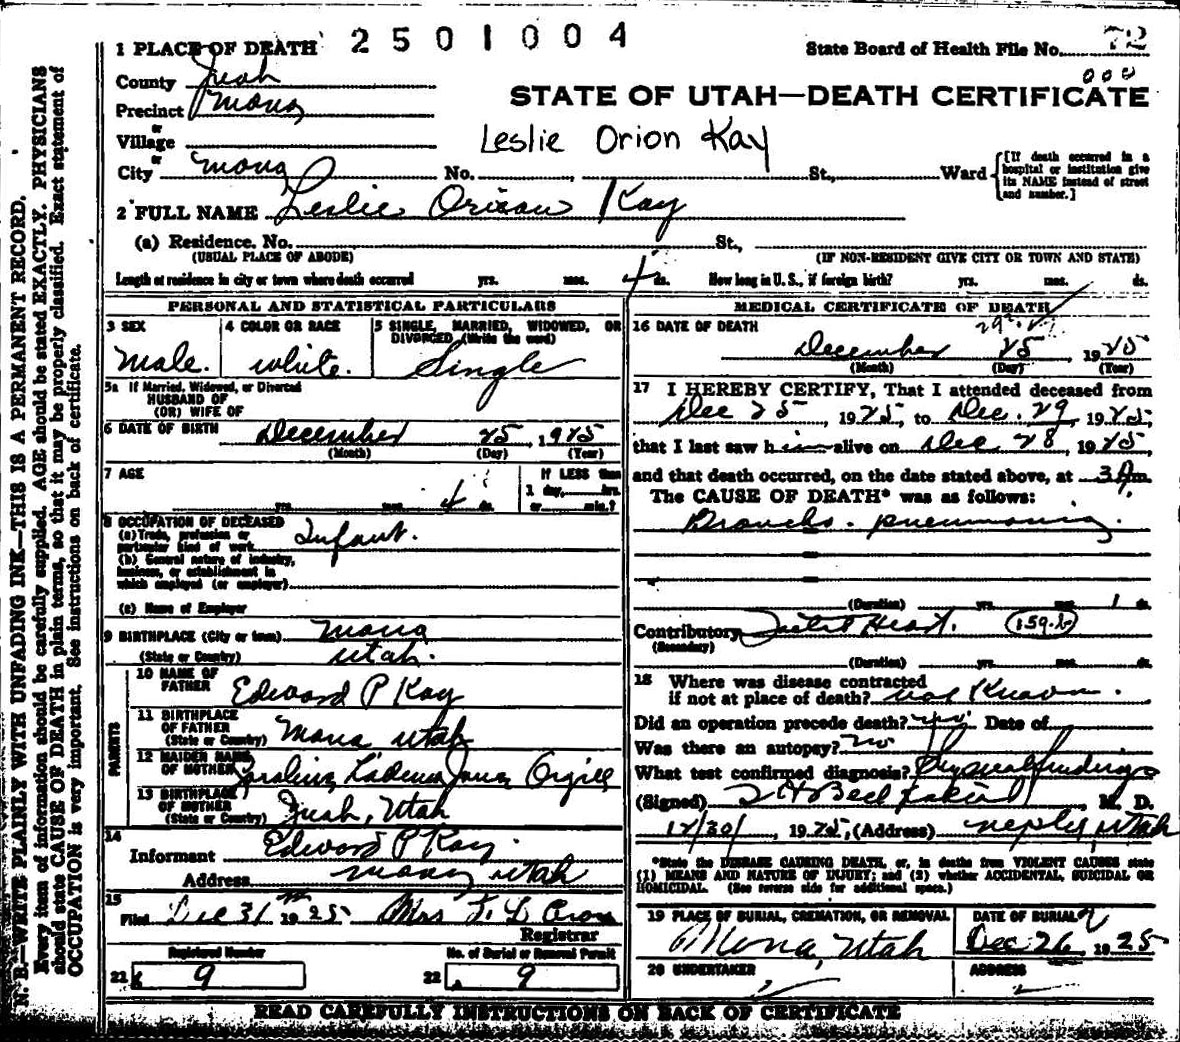 1 PLACE OF DEATH 2501004 State Board of Health File No. 72
County Juab 000
Precinct Mona STATE OF UTAH—DEATH CERTIFICATE
or
Village Leslie Orion Kay
or
City Mona No. St., Ward [If death occurred in a hospital or institution give its NAME instead of street and number.]
2 FULL NAME Leslie Orison Kay
(a) Residence. No. St.,
(USUAL PLACE OF ABODE) (IF NON-RESIDENT GIVE CITY OR TOWN AND STATE)
Length of residence in city or town where death occurred yrs. mos. 4 ds. How long in U.S., if foreign birth? yrs. mos. ds.
PERSONAL AND STATISTICAL PARTICULARS
3 SEX 4 COLOR OR RACE 5 SINGLE, MARRIED, WIDOWED, OR DIVORCED (Write the word)
Male. White. Single
5a If Married, Widowed, or Divorced
HUSBAND OF
(OR) WIFE OF
6 DATE OF BIRTH December 25, 1925
(Month) (Day) (Year)
7 AGE If LESS than
1 day, hrs.
yrs. mos. 4 ds. or min.?
8 OCCUPATION OF DECEASED
(a) Trade, profession or
particular kind of work Infant.
(b) General nature of industry,
business, or establishment in
which employed (or employer)
(c) Name of Employer
9 BIRTHPLACE (City or town) Mona
(State or Country) Utah.
PARENTS
10 NAME OF
FATHER Edward P Kay
11 BIRTHPLACE
OF FATHER
(State or Country) Mona Utah
12 MAIDEN NAME
OF MOTHER
13 BIRTHPLACE
OF MOTHER
(State or Country) Juab, Utah
14
Informant Edward P Kay
Address Mona Utah
15
Filed Dec 31 1925 Mrs
Registrar
Registered Number No. of Burial or Removal Permit
21 9 22 9
MEDICAL CERTIFICATE OF DEATH
16 DATE OF DEATH 29
December 25, 1925
(Month) (Day) (Year)
17 I HEREBY CERTIFY, That I attended deceased from
Dec 25, 1925, to Dec. 29, 1925,
that I last saw him alive on Dec 28, 1925,
and that death occurred, on the date stated above, at 3 A m.
The CAUSE OF DEATH* was as follows:
Broncho. pneumonia.
(Duration) yrs. mos. 1 ds.
Contributory Heart. 159.b
(Secondary)
(Duration) yrs. mos. ds.
18 Where was disease contracted
if not at place of death? not Known.
Did an operation precede death? Date of
Was there an autopsy? no
What test confirmed diagnosis? Physical findings
(Signed) , M. D.
12/30/, 1925, (Address) Nephi, Utah
*State the DISEASE CAUSING DEATH, or, in deaths from VIOLENT CAUSES state
(1) MEANS AND NATURE OF INJURY; and (2) whether ACCIDENTAL, SUICIDAL OR
HOMICIDAL. (See reverse side for additional space.)
19 PLACE OF BURIAL, CREMATION, OR REMOVAL DATE OF BURIAL
Mona, Utah Dec 26 1925
20 UNDERTAKER ADDRESS
READ CAREFULLY INSTRUCTIONS ON BACK OF CERTIFICATE
N. B.—WRITE PLAINLY WITH UNFADING INK—THIS IS A PERMANENT RECORD.
Every item of information should be carefully supplied. AGE should be stated EXACTLY. PHYSICIANS
should state CAUSE OF DEATH in plain terms, so that it may be properly classified. Exact statement of
OCCUPATION is very important. See instructions on back of certificate.